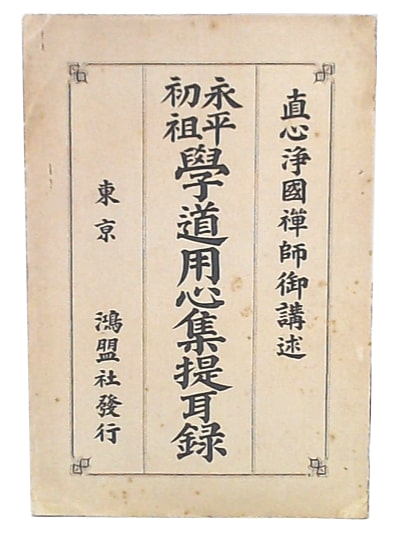 直心浄國禪師御講述
永平
初祖
學道用心集提耳録
東京 鴻盟社發行